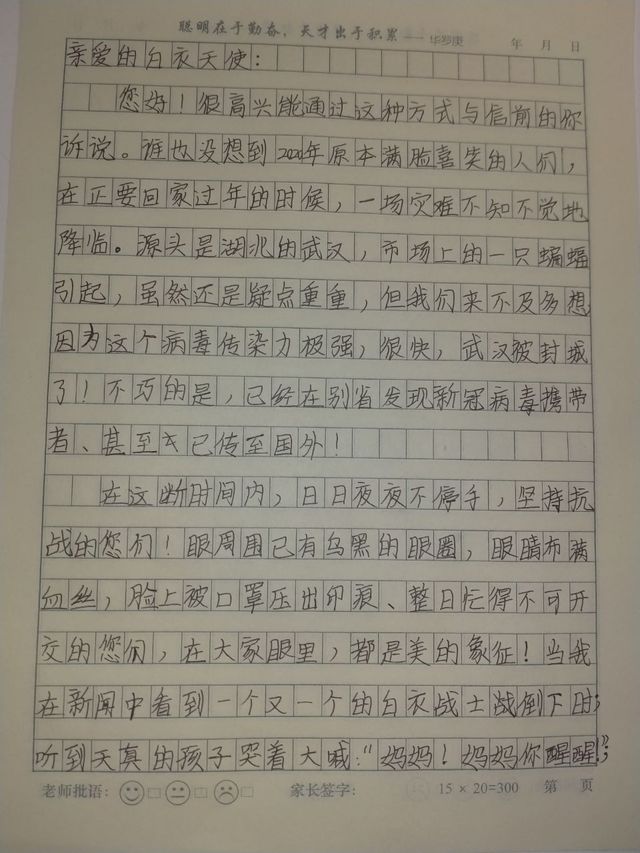 聪明在于勤奋，天才出于积累——华罗庚 年 月 日
亲爱的白衣天使：
您好！很高兴能通过这种方式与信前的你
诉说。谁也没想到2020年原本满脸喜笑的人们，
在正要回家过年的时候，一场灾难不知不觉地
降临。源头是湖北的武汉，市场上的一只蝙蝠
引起，虽然还是疑点重重，但我们来不及多想
因为这个病毒传染力极强，很快，武汉被封城
了！不巧的是，已经在别省发现新冠病毒携带
者、甚至已传至国外！
在这断时间内，日日夜夜不停手，坚持抗
战的您们！眼周围已有乌黑的眼圈，眼睛布满
血丝，脸上被口罩压出印痕、整日忙得不可开
交的您们，在大家眼里，都是美的象征！当我
在新闻中看到一个又一个的白衣战士战倒下时；
听到天真的孩子哭着大喊：“妈妈！妈妈你醒醒！”；
老师批语： 家长签字： 15 × 20=300 第 页